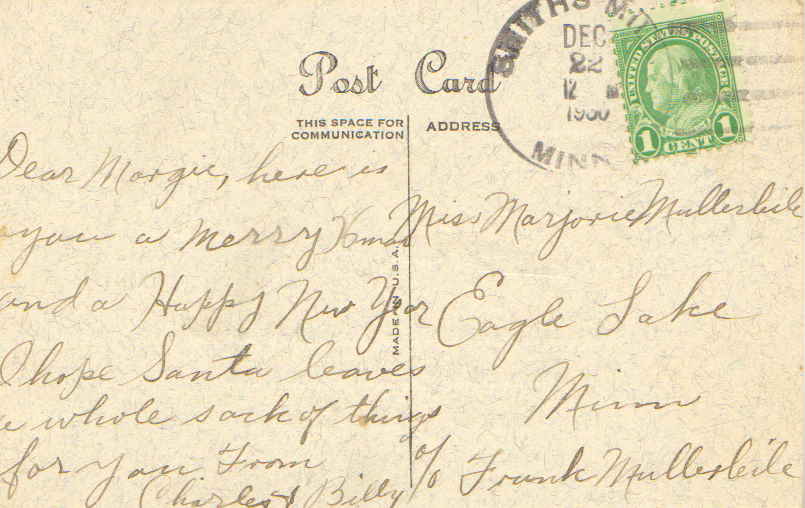 Post Card
THIS SPACE FOR
COMMUNICATION
ADDRESS
SMITHS MI
DEC
22
12 M
1930
MINN
UNITED STATES POSTAGE
1 CENT 1
Dear Margie, here is
you a merry Xmas
and a Happy New Year
I hope Santa leaves
a whole sack of things
for you From
Charles & Billy
MADE IN U.S.A.
Miss Marjorie Mullerleile
Eagle Lake
Minn
c/o Frank Mullerleile